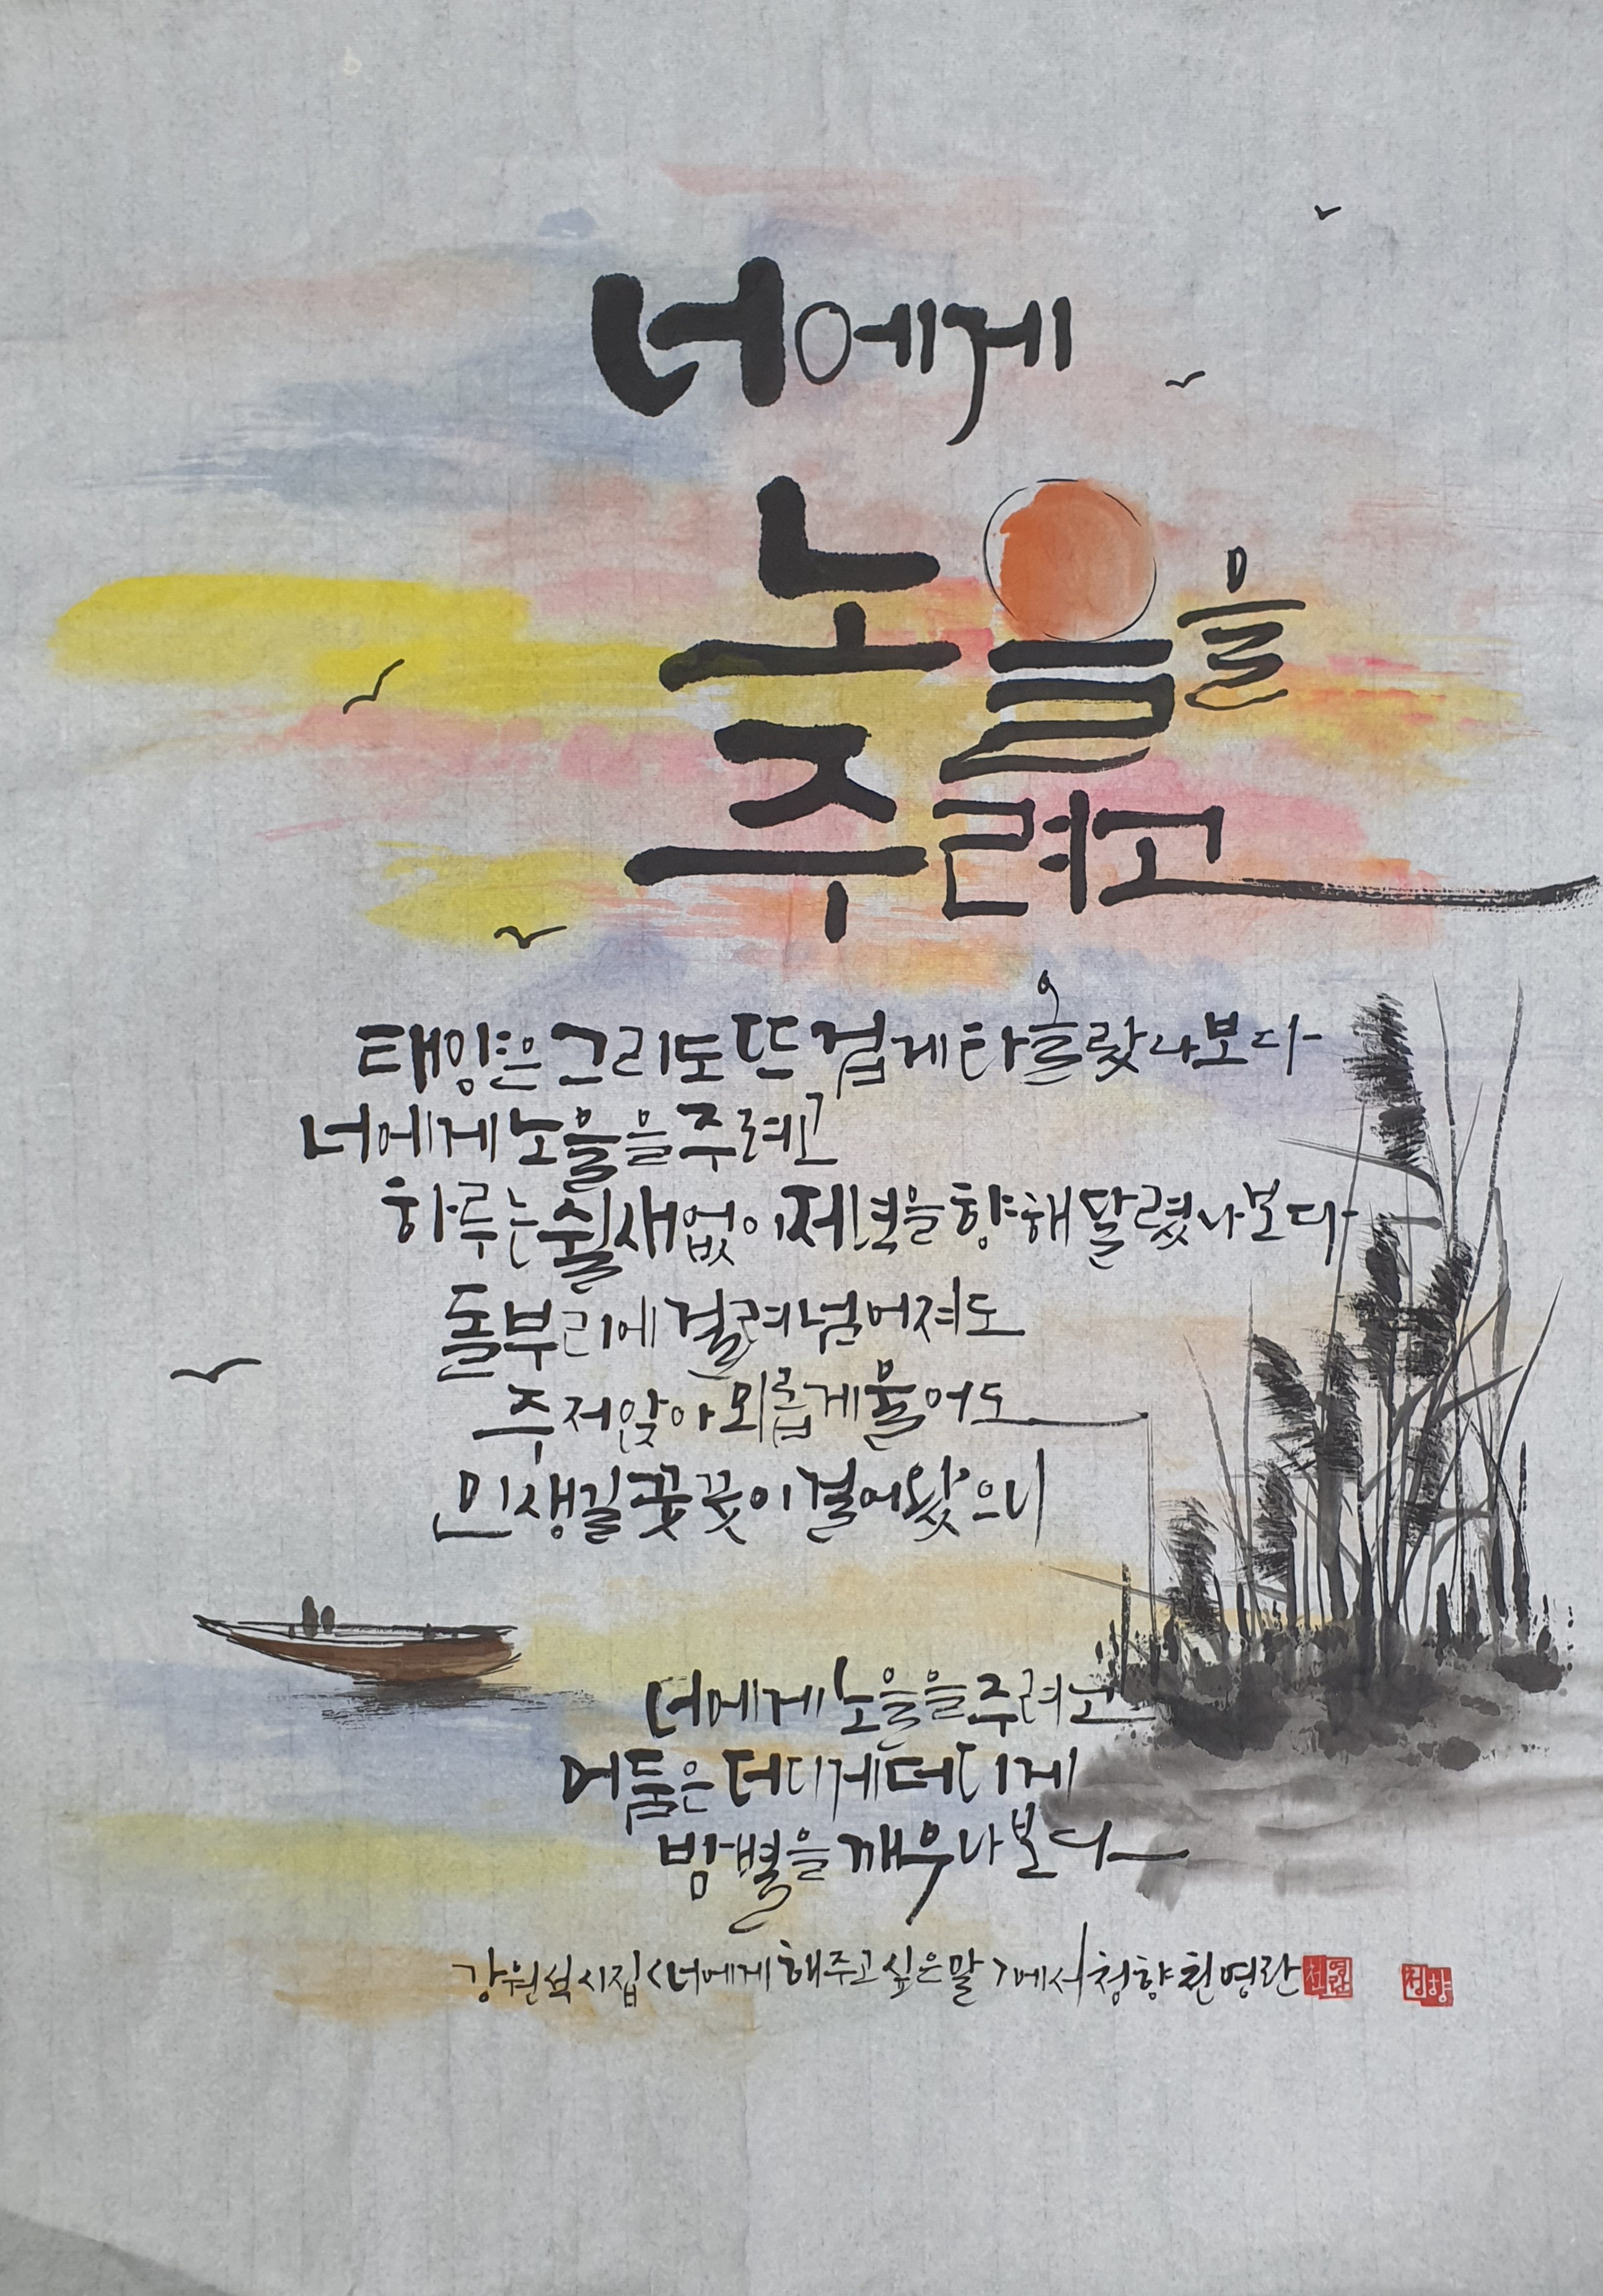 너에게
노을을
주려고
태양은 그리도 뜨겁게 타올랐나 보다
너에게 노을을 주려고
하루는 쉴새없이 저녁을 향해 달렸나 보다
돌부리에 걸려 넘어져도
주저앉아 외롭게 울어도
인생길 꿋꿋이 걸어왔으니
너에게 노을을 주려고
어둠은 더디게 더디게
밤별을 깨우나 보다
강원석 시집 <너에게 해주고 싶은 말>에서 청향 천영란
천영란
청향